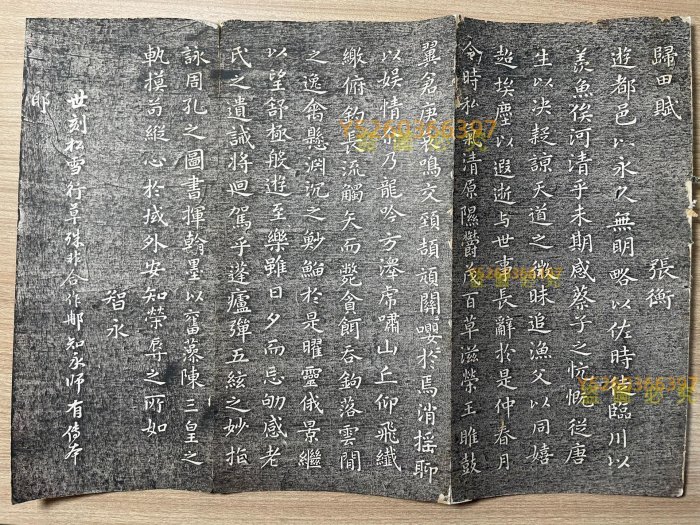 歸田賦 張衡
遊都邑以永久無明略以佐時徒臨川以
羨魚俟河清乎未期感蔡子之忼慨從唐
生以決疑諒天道之微昧追漁父以同嬉
超埃塵以遐逝与世事長辭於是仲春月
令時和氣清原隰鬱茂百草滋榮王雎鼓
翼倉庚哀鳴交頸頡頏關嚶於焉消搖聊
以娛情尒乃龍吟方澤虎嘯山丘仰飛纖
繳俯釣長流觸矢而斃貪餌吞鉤落雲間
之逸禽懸淵沉之魦鰡於是曜靈俄景繼
以望舒極般遊至樂雖日夕而忘劬感老
氏之遺誡將迴駕乎蓬廬彈五絃之妙指
詠周孔之圖書揮翰墨以奮藻陳三皇之
軌摸苟縱心於域外安知榮辱之所如
智永
世刻松雪行草殊非合作那知永師有傳本
耶
15260368397